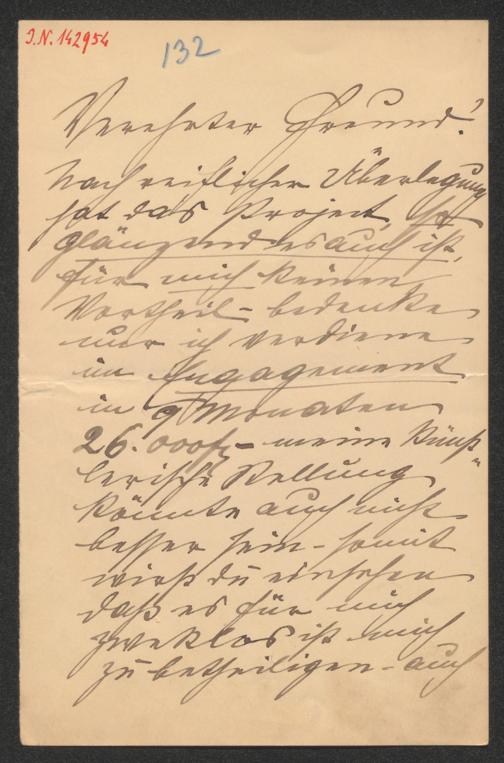 J.N. 142954
132
Verehrter Freund!
Nach reiflicher Überlegung
hat das Project, so
glänzend es auch ist,
für mich keinen
Vortheil – bedenke
nur ich verdiene
im Engagement
in 9 Monaten
26.000 fl – meine künst
lerische Stellung
könnte auch nicht
besser sein – somit
wirst du einsehen
daß es für mich
zweklos ist mich
zu betheiligen – auch